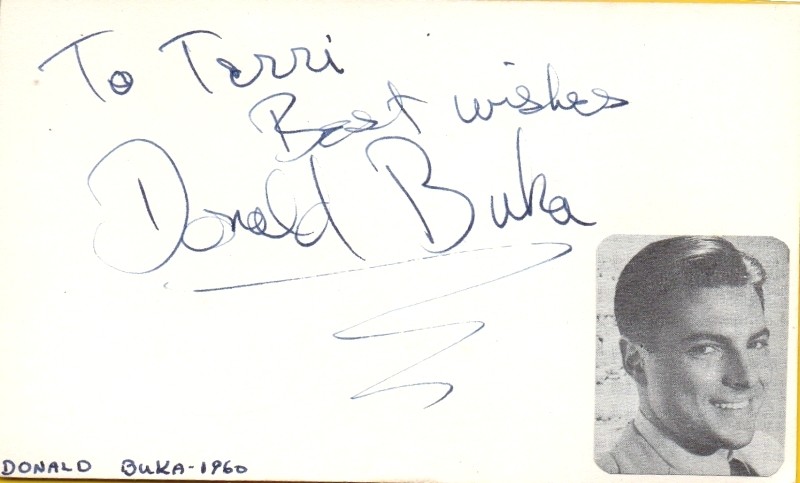 To Terri
Best wishes
Donald Buka
DONALD BUKA-1960